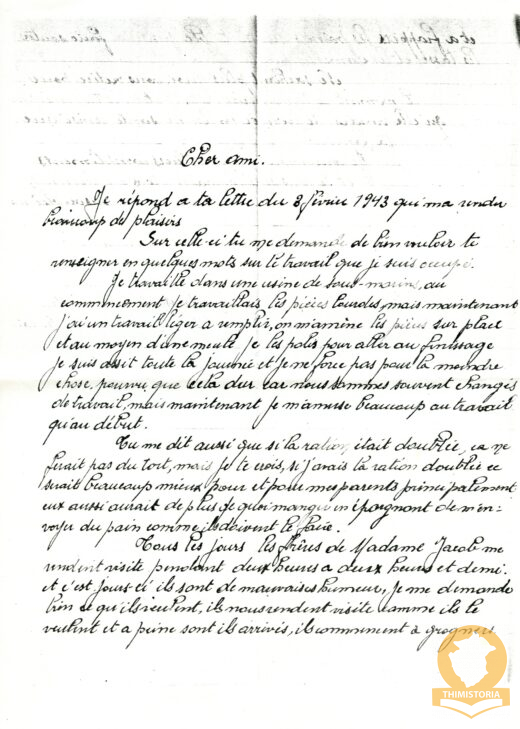 Cher ami.
Je répond a ta lettre du 8 février 1943 qui m'a rendu
beaucoup de plaisirs
Sur celle-ci tu me demande de bien vouloir te
renseigner en quelques mots sur le travail que je suis occupé.
Je travaille dans une usine de sous-marins, au
commencement je travaillais les pièces lourdes, mais maintenant
j'ai un travail léger a remplir, on m'amène les pièces sur place
et au moyen d'une meule je les polis pour aller au finissage
je suis assit toute la journée et je ne force pas pour la moindre
chose, pourvu que cela dur car nous sommes souvent changés
de travail, mais maintenant je m'amuse beaucoup au travail
qu'au début.
Tu me dit aussi que si la ration, était doublée, ca ne
ferait pas du tort, mais je te crois, si j'avais la ration doublée ce
serait beaucoup mieux pour et pour mes parents principalement
eux aussi aurait de plus de quoi manger en épargnant de m'en-
voyer du pain comme ils doivent le faire.
Tous les jours les frères de Madame Jacob me
rendent visite pendant deux heures a deux heures et demi.
et c'est jours ci ils sont de mauvaises humeur, je me demande
bien ce qu'ils veulent, ils nous rendent visite comme ils le
veulent et a peine sont ils arrivés, ils commencent à grogner
THIMISTORIA